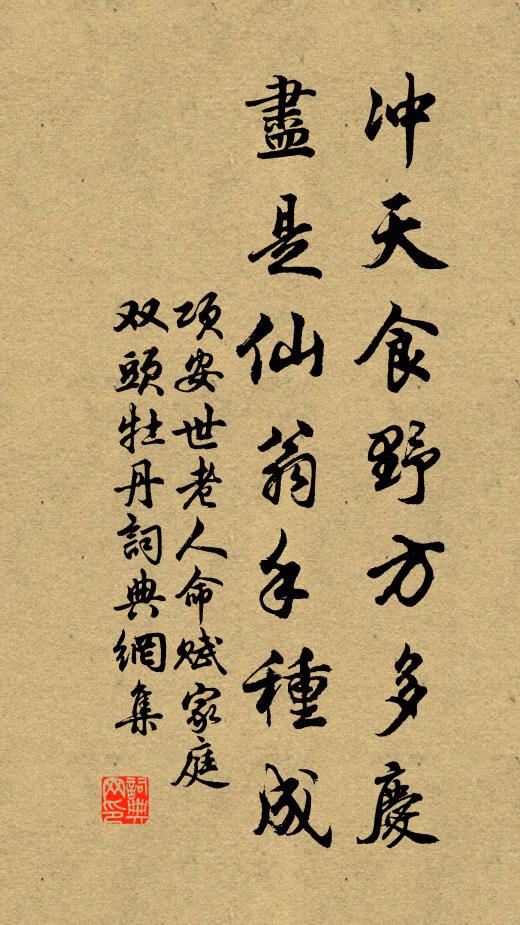 冲天食野方多慶
盡是仙翁手種成
项安世老人命赋家庭
双頭牡丹詞典網集
詞典
网印